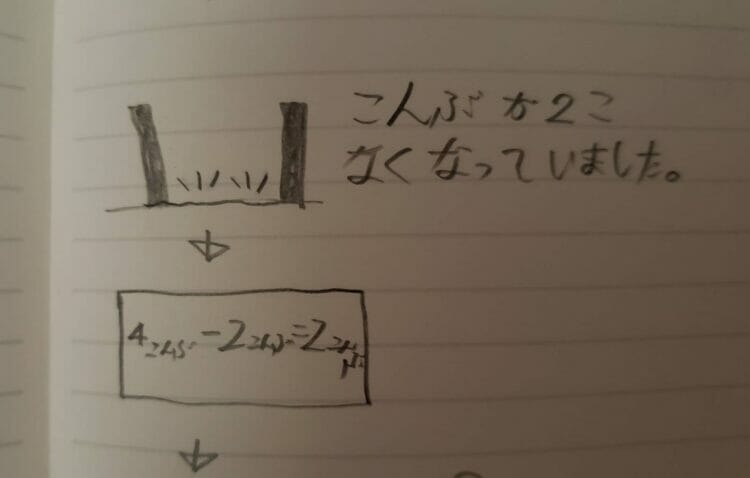 こんぶが2こ
なくなっていました。
4こんぶ-2こんぶ=2こんぶ